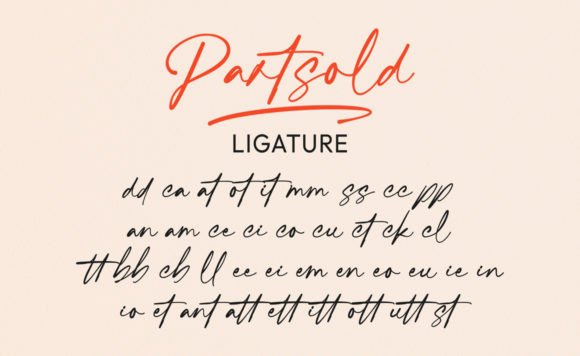 Partsold
LIGATURE
dd ca at ot it mm ss cc pp
an am ce ci co cu ct ck cl
tt bb cb ll ee ei em en eo eu ie in
io et ant att ett itt ott utt st